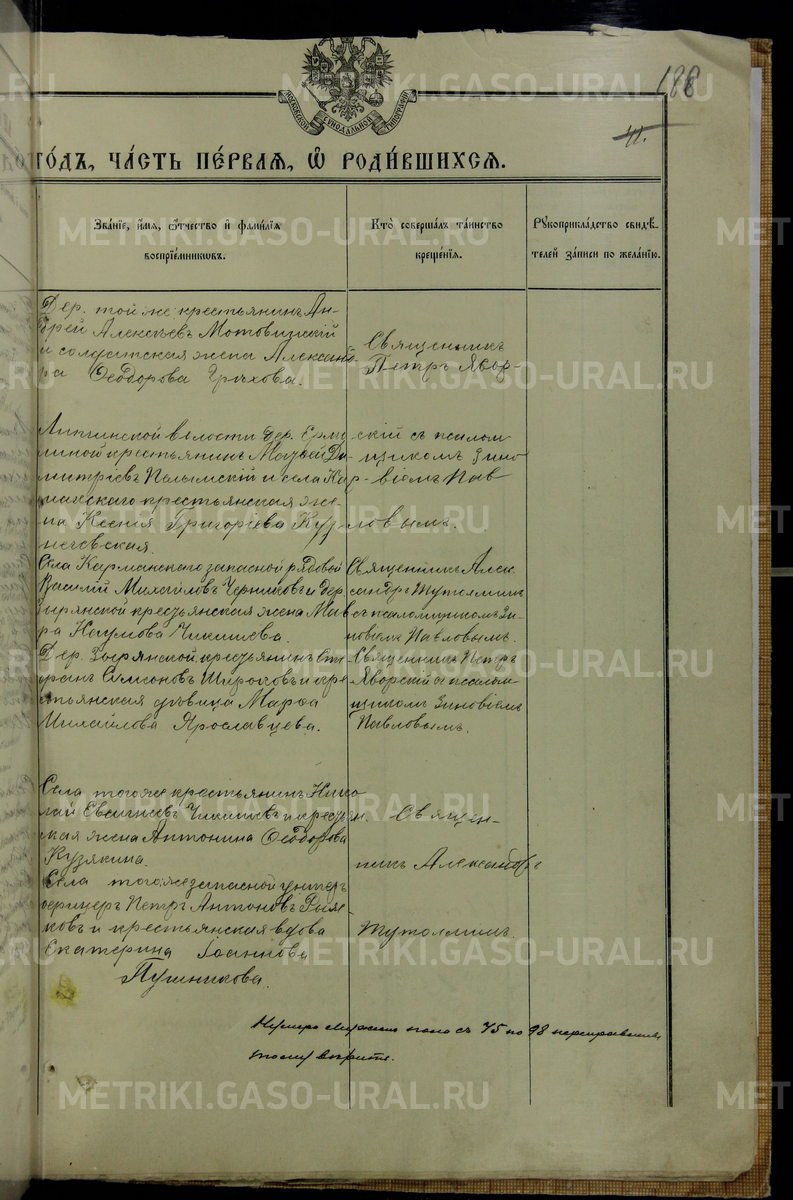 188
41.
МОСКОВСКОЙ СѴНОДАЛЬНОЙ ТИПОГРАФІИ
ГО́ДЪ, ЧА́СТЬ ПЕ́РВАЯ, Ѽ РОДИ́ВШИХСЯ.
Зва́ніе, и́мя, ѻ҆́тчество и҆ фами́лія
воспріе́мниковъ.
Кто̀ соверша́лъ та́инство
креще́нія.
Рꙋкоприкла́дство свидѣ́-
телей за́писи по жела́нію.
Дер. той же крестьянинъ Ан-
дрей Алексѣевъ Мотовизскій
и солдатская жена Алексан-
ра Ѳеодорова Гряхова.
Священникъ
Петръ Явор-
волости дер. Ерму
ной крестьянинъ Матвей Ди-
митріевъ Пелымскій и села Кар
макского крестьянская же-
на Ксенія Григоріева Куз
нечевская.
скій съ псалом
щикомъ Зино
віемъ Пав
ловымъ.
Села Кармакского запасной рядовой
Василій Михайловъ Черниковъ и дер.
Зырянской крестьянская жена Мав
ра Наумова Чикишева.
Священникъ Алек
сандръ Тутолминъ
съ псаломщикомъ Зи-
новіемъ Павловымъ.
Дер. Зырянской крестьянинъ Сте
фанъ Симоновъ и кре
стьянская дѣвица Марѳа
Михайлова Ярославцева.
Священникъ Петръ
Яворскій съ псалом
щикомъ Зиновіемъ
Павловымъ.
Села того же крестьянинъ Нико
лай Евгеніевъ Чикишевъ и крестьян.
ская жена Антонина Ѳеодорова
Кузякина.
Священ-
никъ Александръ
Села того же запасной унтеръ
офицеръ Петръ Антоновъ
ковъ и крестьянская вдова
Екатерина Іоаннова
Пушникова.
Тутолминъ.
Нумера мужского пола съ 75 по 98
METRIKI.GASO-URAL.RU